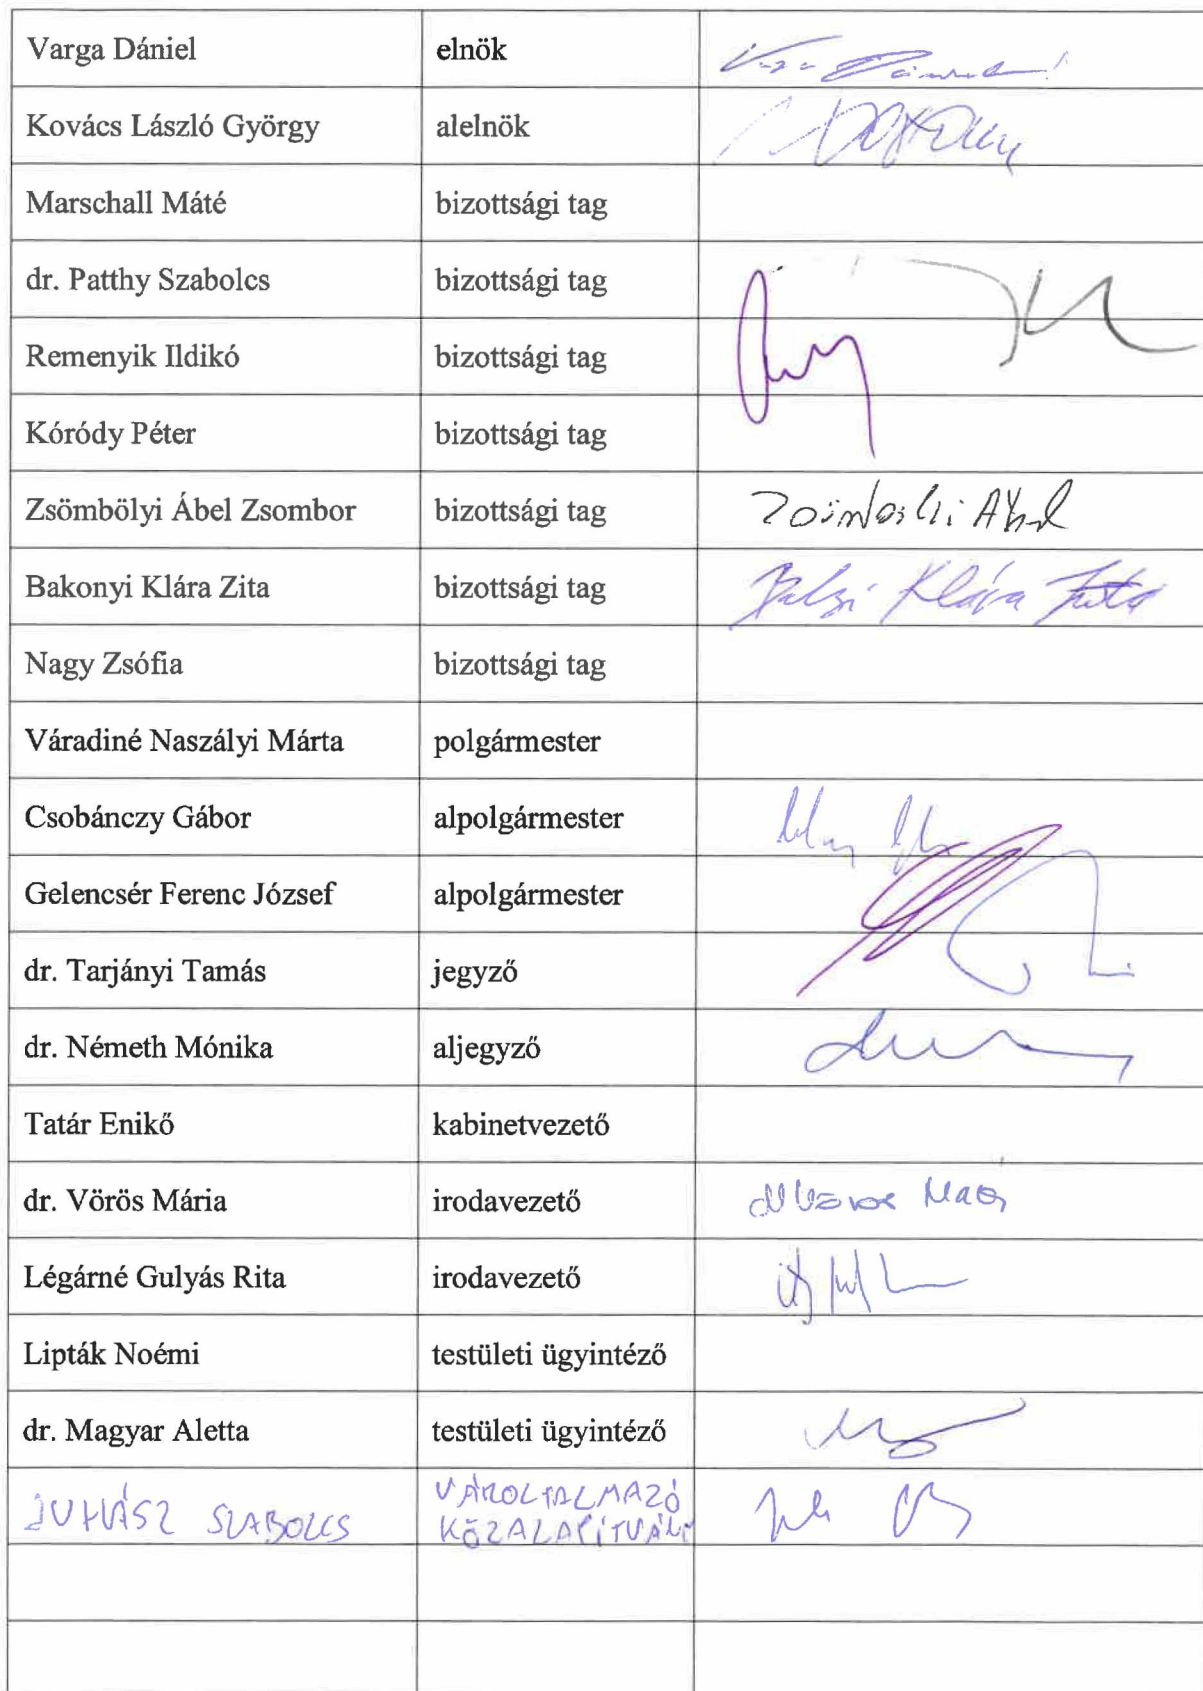 Varga Dániel elnök
Kovács László György alelnök
Marschall Máté bizottsági tag
dr. Patthy Szabolcs bizottsági tag
Remenyik Ildikó bizottsági tag
Kóródy Péter bizottsági tag
Zsömbölyi Ábel Zsombor bizottsági tag
Bakonyi Klára Zita bizottsági tag Klára
Nagy Zsófia bizottsági tag
Váradiné Naszályi Márta polgármester
Csobánczy Gábor alpolgármester
Gelencsér Ferenc József alpolgármester
dr. Tarjányi Tamás jegyző
dr. Németh Mónika aljegyző
Tatár Enikő kabinetvezető
dr. Vörös Mária irodavezető
Légárné Gulyás Rita irodavezető
Lipták Noémi testületi ügyintéző
dr. Magyar Aletta testületi ügyintéző
JUHÁSZ SZABOLCS